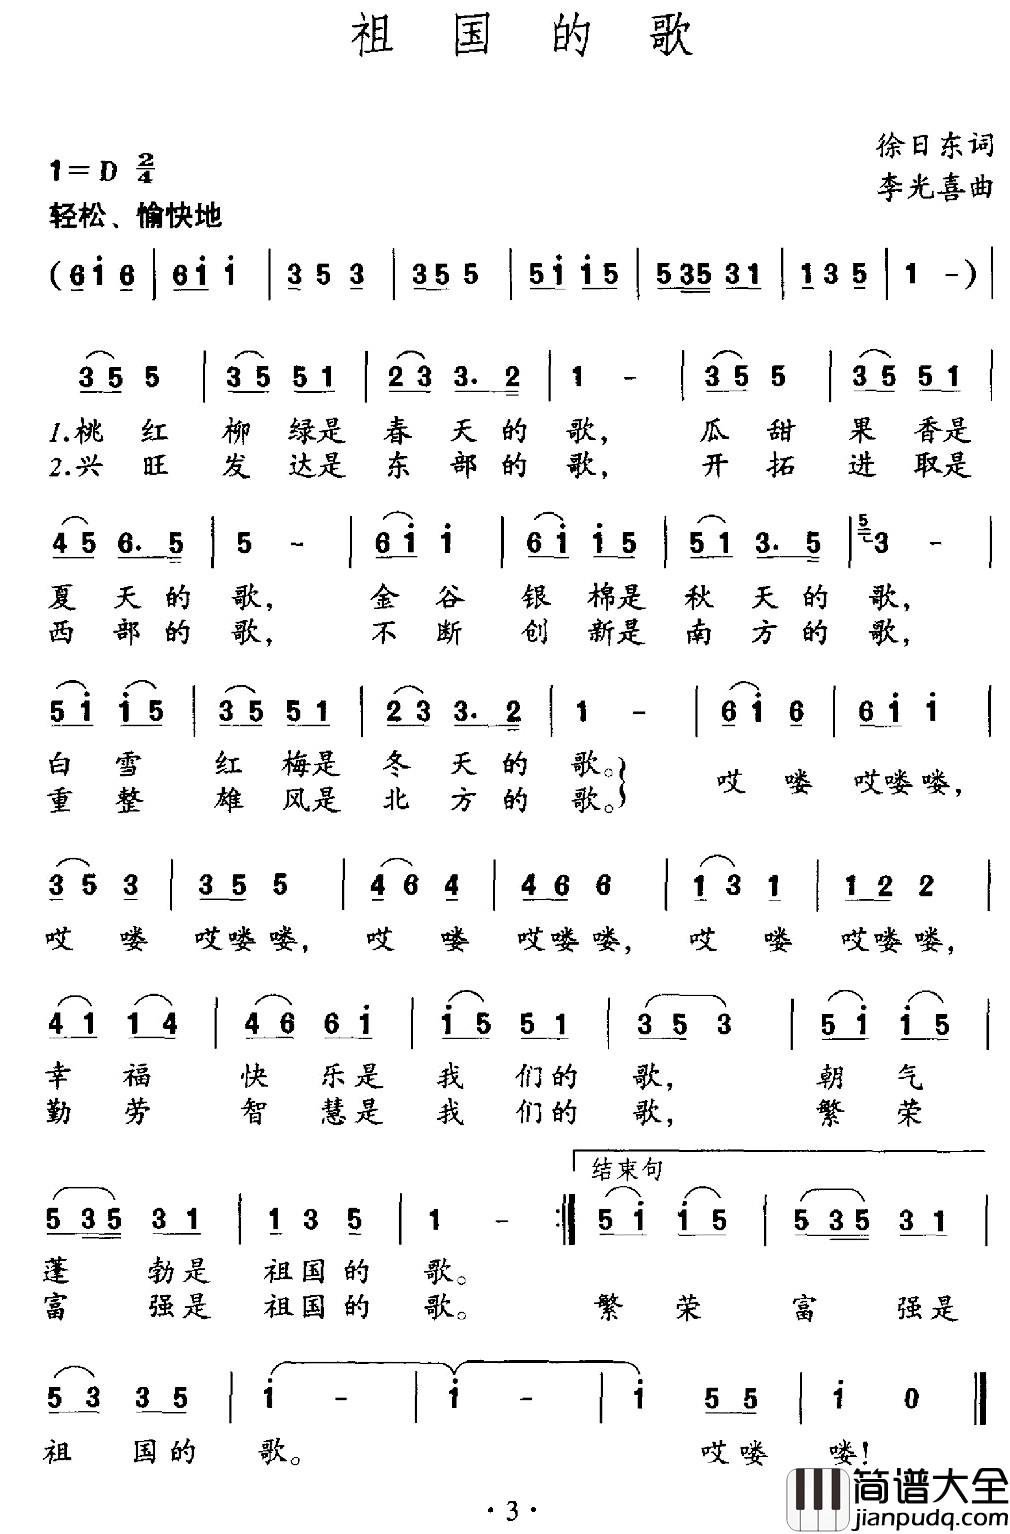 祖国的歌
徐日东词
1=D 2/4
李光喜曲
轻松、愉快地
(6 i 6 | 6 i i | 3 5 3 | 3 5 5 | 5 i i 5 | 5 3 5 3 1 | 1 3 5 | 1 -) |
3 5 5 | 3 5 5 1 | 2 3 3. 2 | 1 - | 3 5 5 | 3 5 5 1 |
1.桃红 柳绿是 春天的 歌, 瓜甜 果香是
2.兴旺 发达是 东部的 歌, 开拓 进取是
4 5 6. 5 | 5 - | 6 i i | 6 i i 5 | 5 1 3. 5 | 5 3 - |
夏天的 歌, 金谷 银棉是 秋天的 歌,
西部的 歌, 不断 创新是 南方的 歌,
5 i i 5 | 3 5 5 1 | 2 3 3. 2 | 1 - | 6 i 6 | 6 i i |
白雪 红梅是 冬天的 歌。} 哎喽 哎喽喽,
重整 雄风是 北方的 歌。
3 5 3 | 3 5 5 | 4 6 4 | 4 6 6 | 1 3 1 | 1 2 2 |
哎喽 哎喽喽, 哎喽 哎喽喽, 哎喽 哎喽喽,
4 1 1 4 | 4 6 6 i | i 5 5 1 | 3 5 3 | 5 i i 5 |
幸福 快乐是 我们的 歌, 朝气
勤劳 智慧是 我们的 歌, 繁荣
结束句
5 3 5 3 1 | 1 3 5 | 1 - :| 5 i i 5 | 5 3 5 3 1 |
蓬勃是 祖国的 歌。
富强是 祖国的 歌。 繁荣 富强是
5 3 3 5 | i - | i - | i 5 5 | i 0 ‖
祖国的 歌。 哎喽 喽!
·3·
简谱大全
jianpudq.com